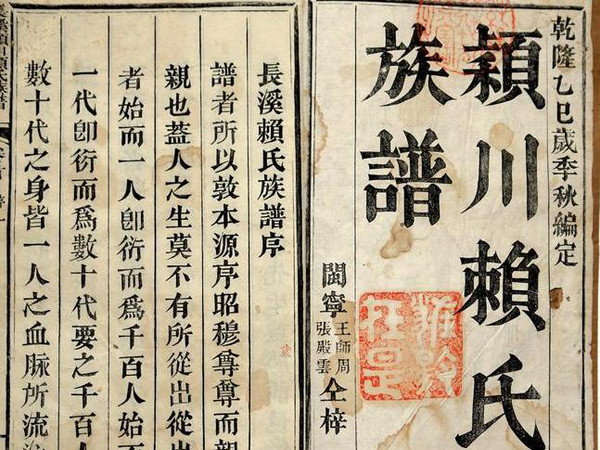 乾隆乙巳歲季秋編定
潁川賴氏
族譜
閩寧王師周張殿雲仝梓
長溪賴氏族譜序
譜者所以敦本源序昭穆尊尊而親
親也蓋人之生莫不有所從出從出
者始而一人卽衍而爲千百人始而
一代卽衍而爲數十代要之千百人
數十代之身皆一人之血脈所流